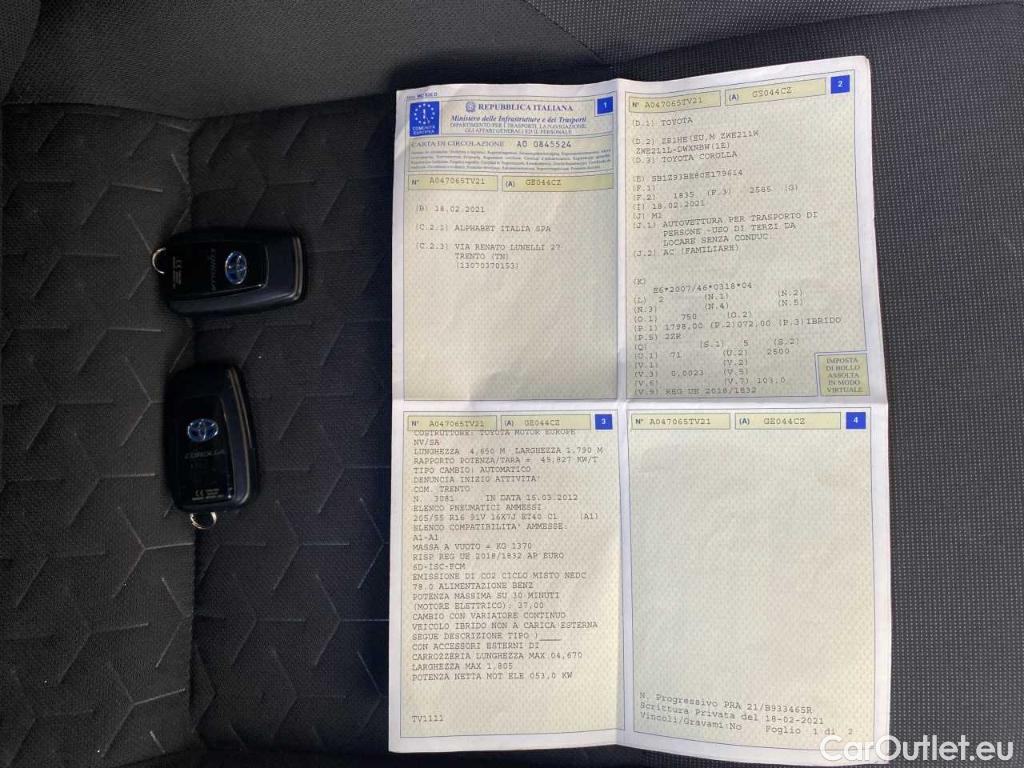 COMUNITÀ
EUROPEA
REPUBBLICA ITALIANA
Ministero delle Infrastrutture e dei Trasporti
DIPARTIMENTO PER I TRASPORTI, LA NAVIGAZIONE,
GLI AFFARI GENERALI ED IL PERSONALE
1
CARTA DI CIRCOLAZIONE AO 0845524
N° A047065TV21 (A) GE044CZ
(B) 18.02.2021
(C.2.1) ALPHABET ITALIA SPA
(C.2.3) VIA RENATO LUNELLI 27
TRENTO (TN)
(13070370153)
2
N° A047065TV21 (A) GE044CZ
(D.1) TOYOTA
(D.2) ZE1HE(EU,M ZWE211W
ZWE211L-DWXNBW(1E)
(D.3) TOYOTA COROLLA
(E) SB1Z93BE80E179614
(F.1)
(F.2) 1835 (F.3) 2585 (G)
(I) 18.02.2021
(J) M1
(J.1) AUTOVETTURA PER TRASPORTO DI
PERSONE -USO DI TERZI DA
LOCARE SENZA CONDUC.
(J.2) AC (FAMILIARE)
(K)
E6*2007/46*0318*04
(L) 2 (N.1) (N.2)
(N.3) (N.4) (N.5)
(O.1) 750 (O.2)
(P.1) 1798,00 (P.2)072,00 (P.3)IBRIDO
(P.5) 2ZR
(Q) (S.1) 5 (S.2)
(U.1) 71 (U.2) 2500
(V.1) (V.2)
(V.3) 0,0023 (V.5)
(V.6) (V.7) 103,0
(V.9) REG UE 2018/1832
IMPOSTA
DI BOLLO
ASSOLTA
IN MODO
VIRTUALE
N° A047065TV21 (A) GE044CZ 3
COSTRUTTORE: TOYOTA MOTOR EUROPE
NV/SA
LUNGHEZZA 4,650 M LARGHEZZA 1,790 M
RAPPORTO POTENZA/TARA = 45,827 KW/T
TIPO CAMBIO: AUTOMATICO
DENUNCIA INIZIO ATTIVITA'
COM. TRENTO
N. 3081 IN DATA 15.03.2012
ELENCO PNEUMATICI AMMESSI
205/55 R16 91V 16X7J ET40 C1 (A1)
ELENCO COMPATIBILITA' AMMESSE:
A1-A1
MASSA A VUOTO = KG 1370
RISP REG UE 2018/1832 AP EURO
6D-ISC-FCM
EMISSIONE DI CO2 CICLO MISTO NEDC
78.0 ALIMENTAZIONE BENZ
POTENZA MASSIMA SU 30 MINUTI
(MOTORE ELETTRICO): 37,00
CAMBIO CON VARIATORE CONTINUO
VEICOLO IBRIDO NON A CARICA ESTERNA
SEGUE DESCRIZIONE TIPO )____
CON ACCESSORI ESTERNI DI
CARROZZERIA LUNGHEZZA MAX 04,670
LARGHEZZA MAX 1,805
POTENZA NETTA MOT ELE 053,0 KW
TV1111
N° A047065TV21 (A) GE044CZ 4
N. Progressivo PRA 21/B933465R
Scrittura Privata del 18-02-2021
Vincoli/Gravami:No Foglio 1 di 2
COROLLA
COROLLA
CarOutlet.eu